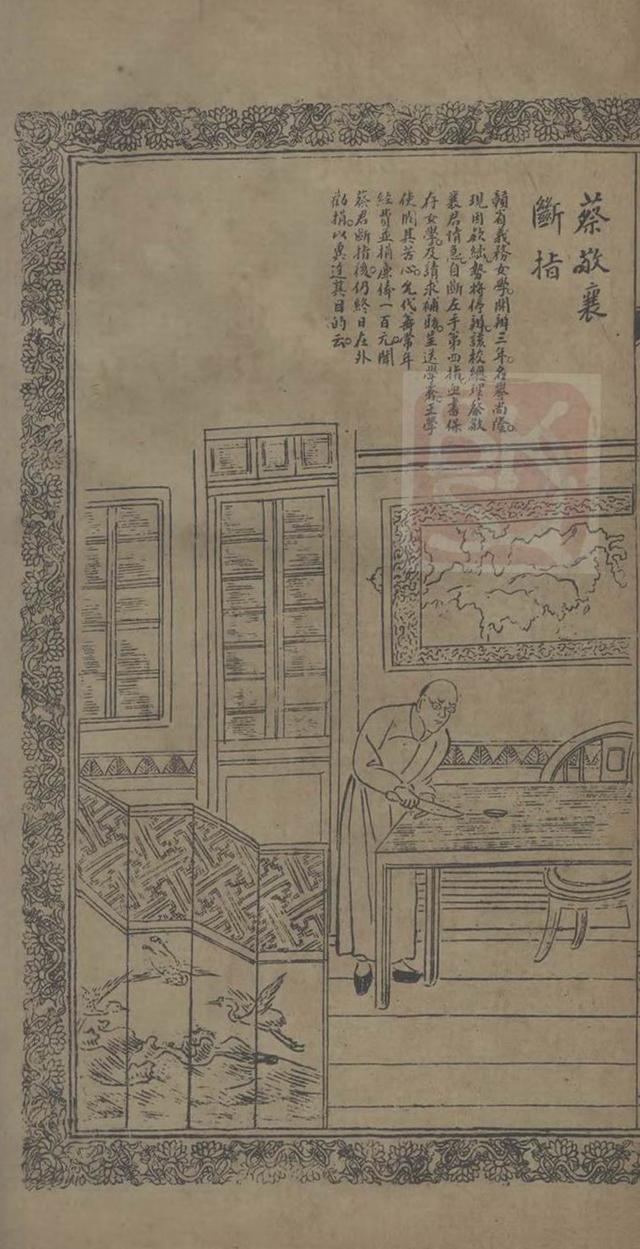 蔡敬襄
斷指
贛省義務女學開辦三年名譽尚隆
現因款絀勢將停辦該校總理蔡敬
襄君情急自斷左手第四指血書保
存女學及請求補助呈送學務王學
使閔其苦心允代籌常年
經費並捐廉俸一百元聞
蔡君斷指後仍終日在外
勸捐以冀達其目的云